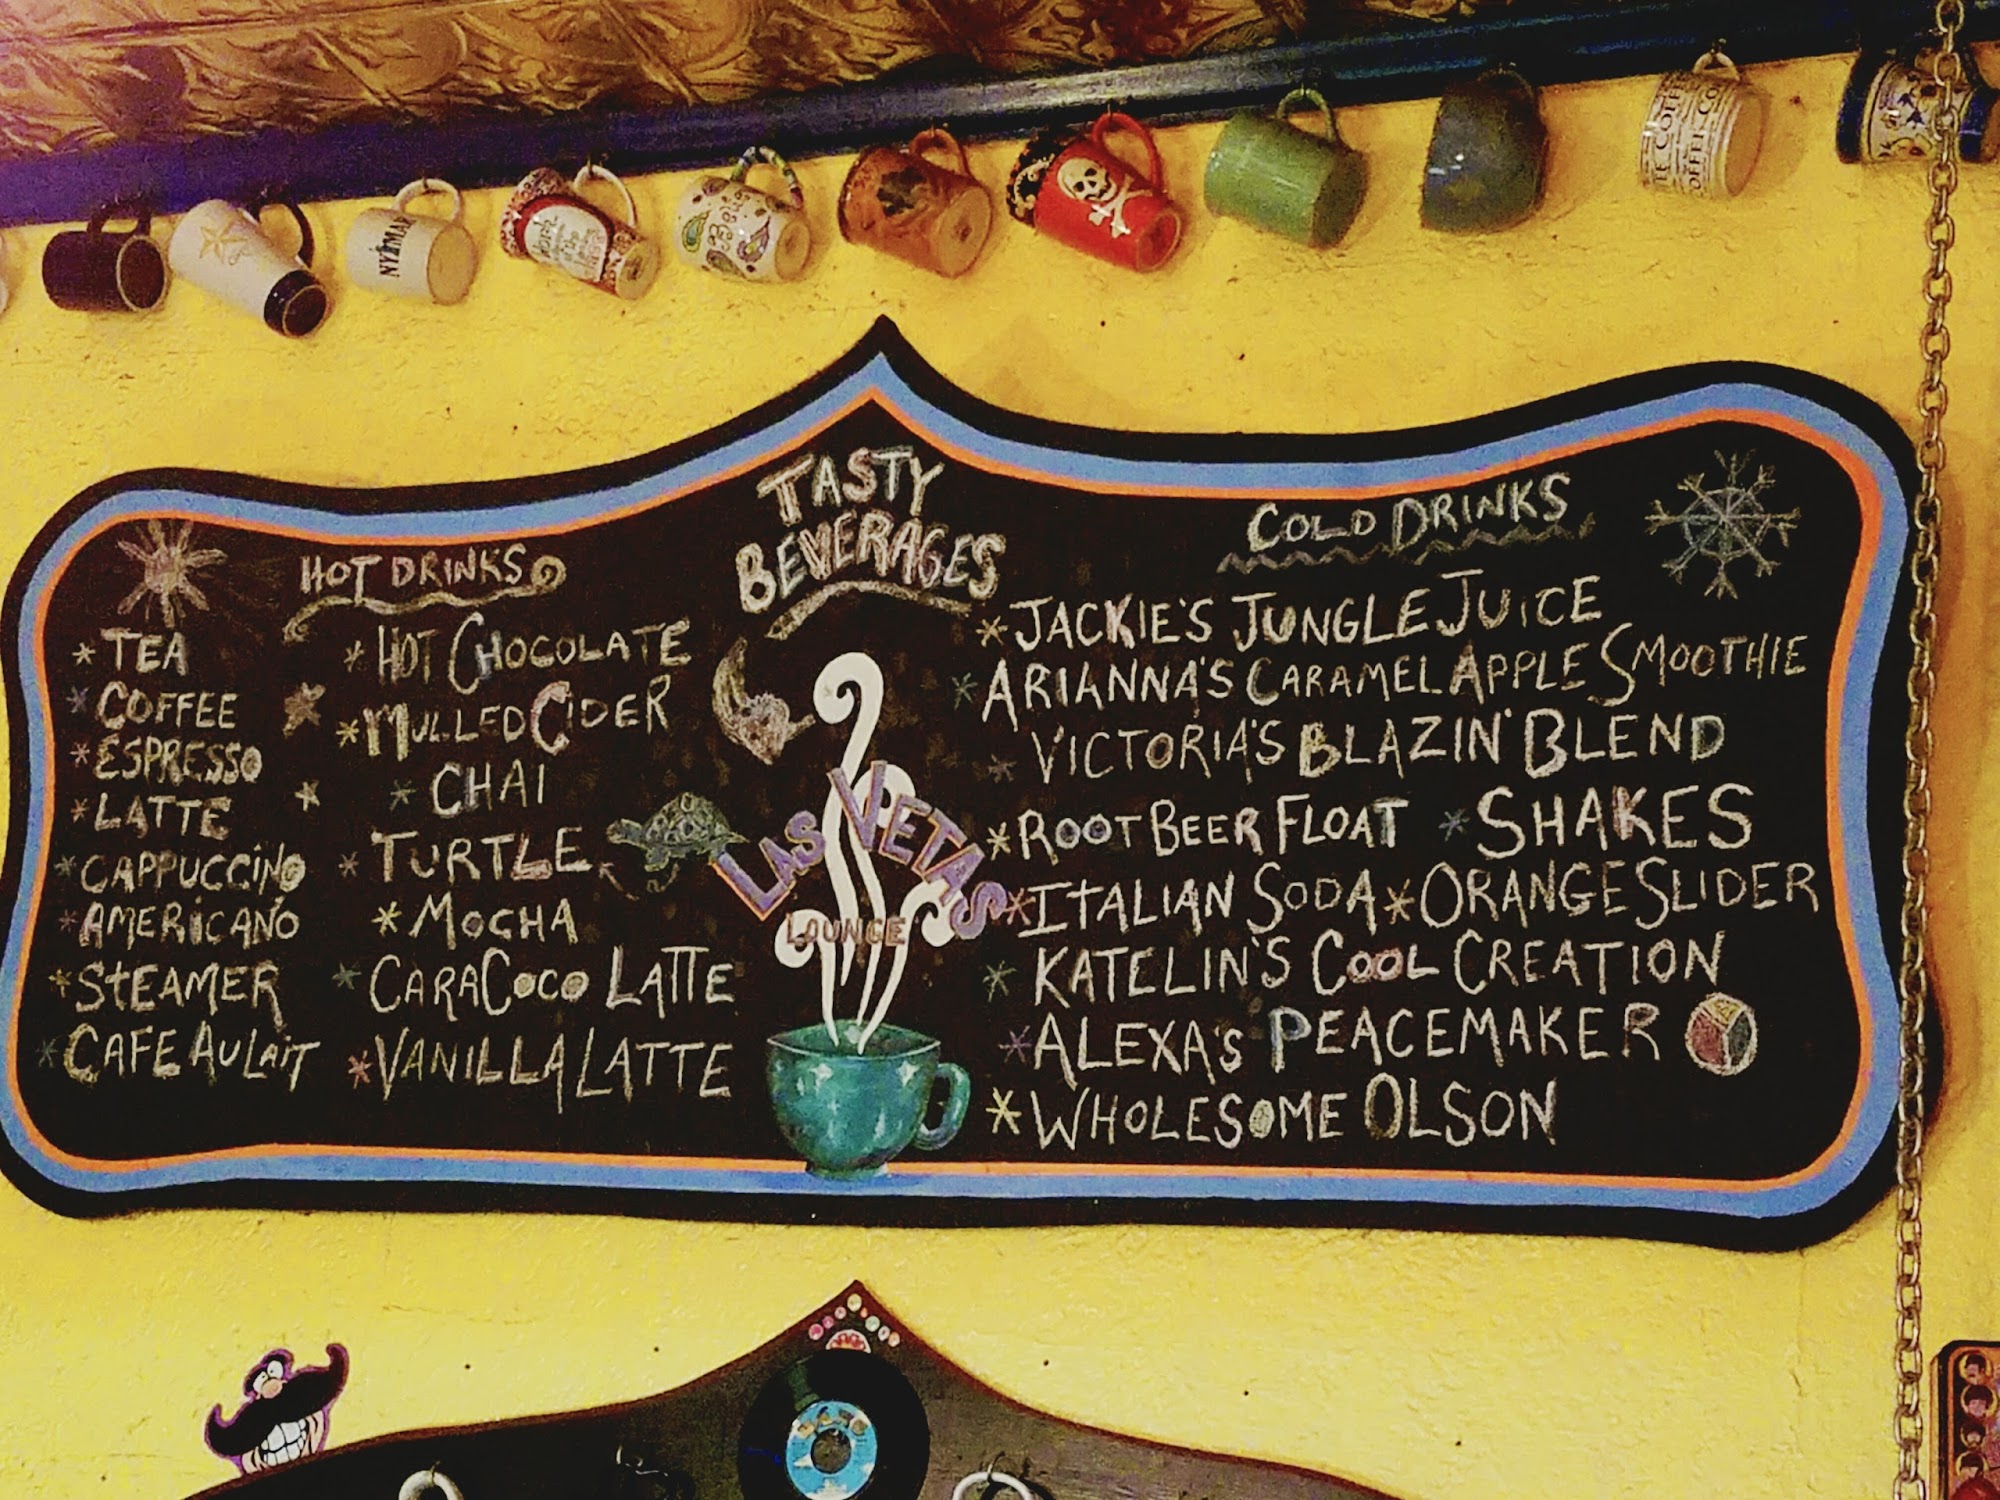 NY MAR
TE COFFE
OFFEE CO
TASTY
BEVERAGES
HOT DRINKS
*TEA
*COFFEE
*ESPRESSO
*LATTE
*CAPPUCCINO
*AMERICANO
*STEAMER
*CAFE AU LAIT
*HOT CHOCOLATE
*MULLED CIDER
*CHAI
*TURTLE
*MOCHA
*CARACOCO LATTE
*VANILLA LATTE
LAS VETAS
LOUNGE
COLD DRINKS
*JACKIE'S JUNGLE JUICE
*ARIANNA'S CARAMEL APPLE SMOOTHIE
*VICTORIA'S BLAZIN' BLEND
*ROOT BEER FLOAT *SHAKES
*ITALIAN SODA *ORANGE SLIDER
*KATELIN'S COOL CREATION
*ALEXA'S PEACEMAKER
*WHOLESOME OLSON